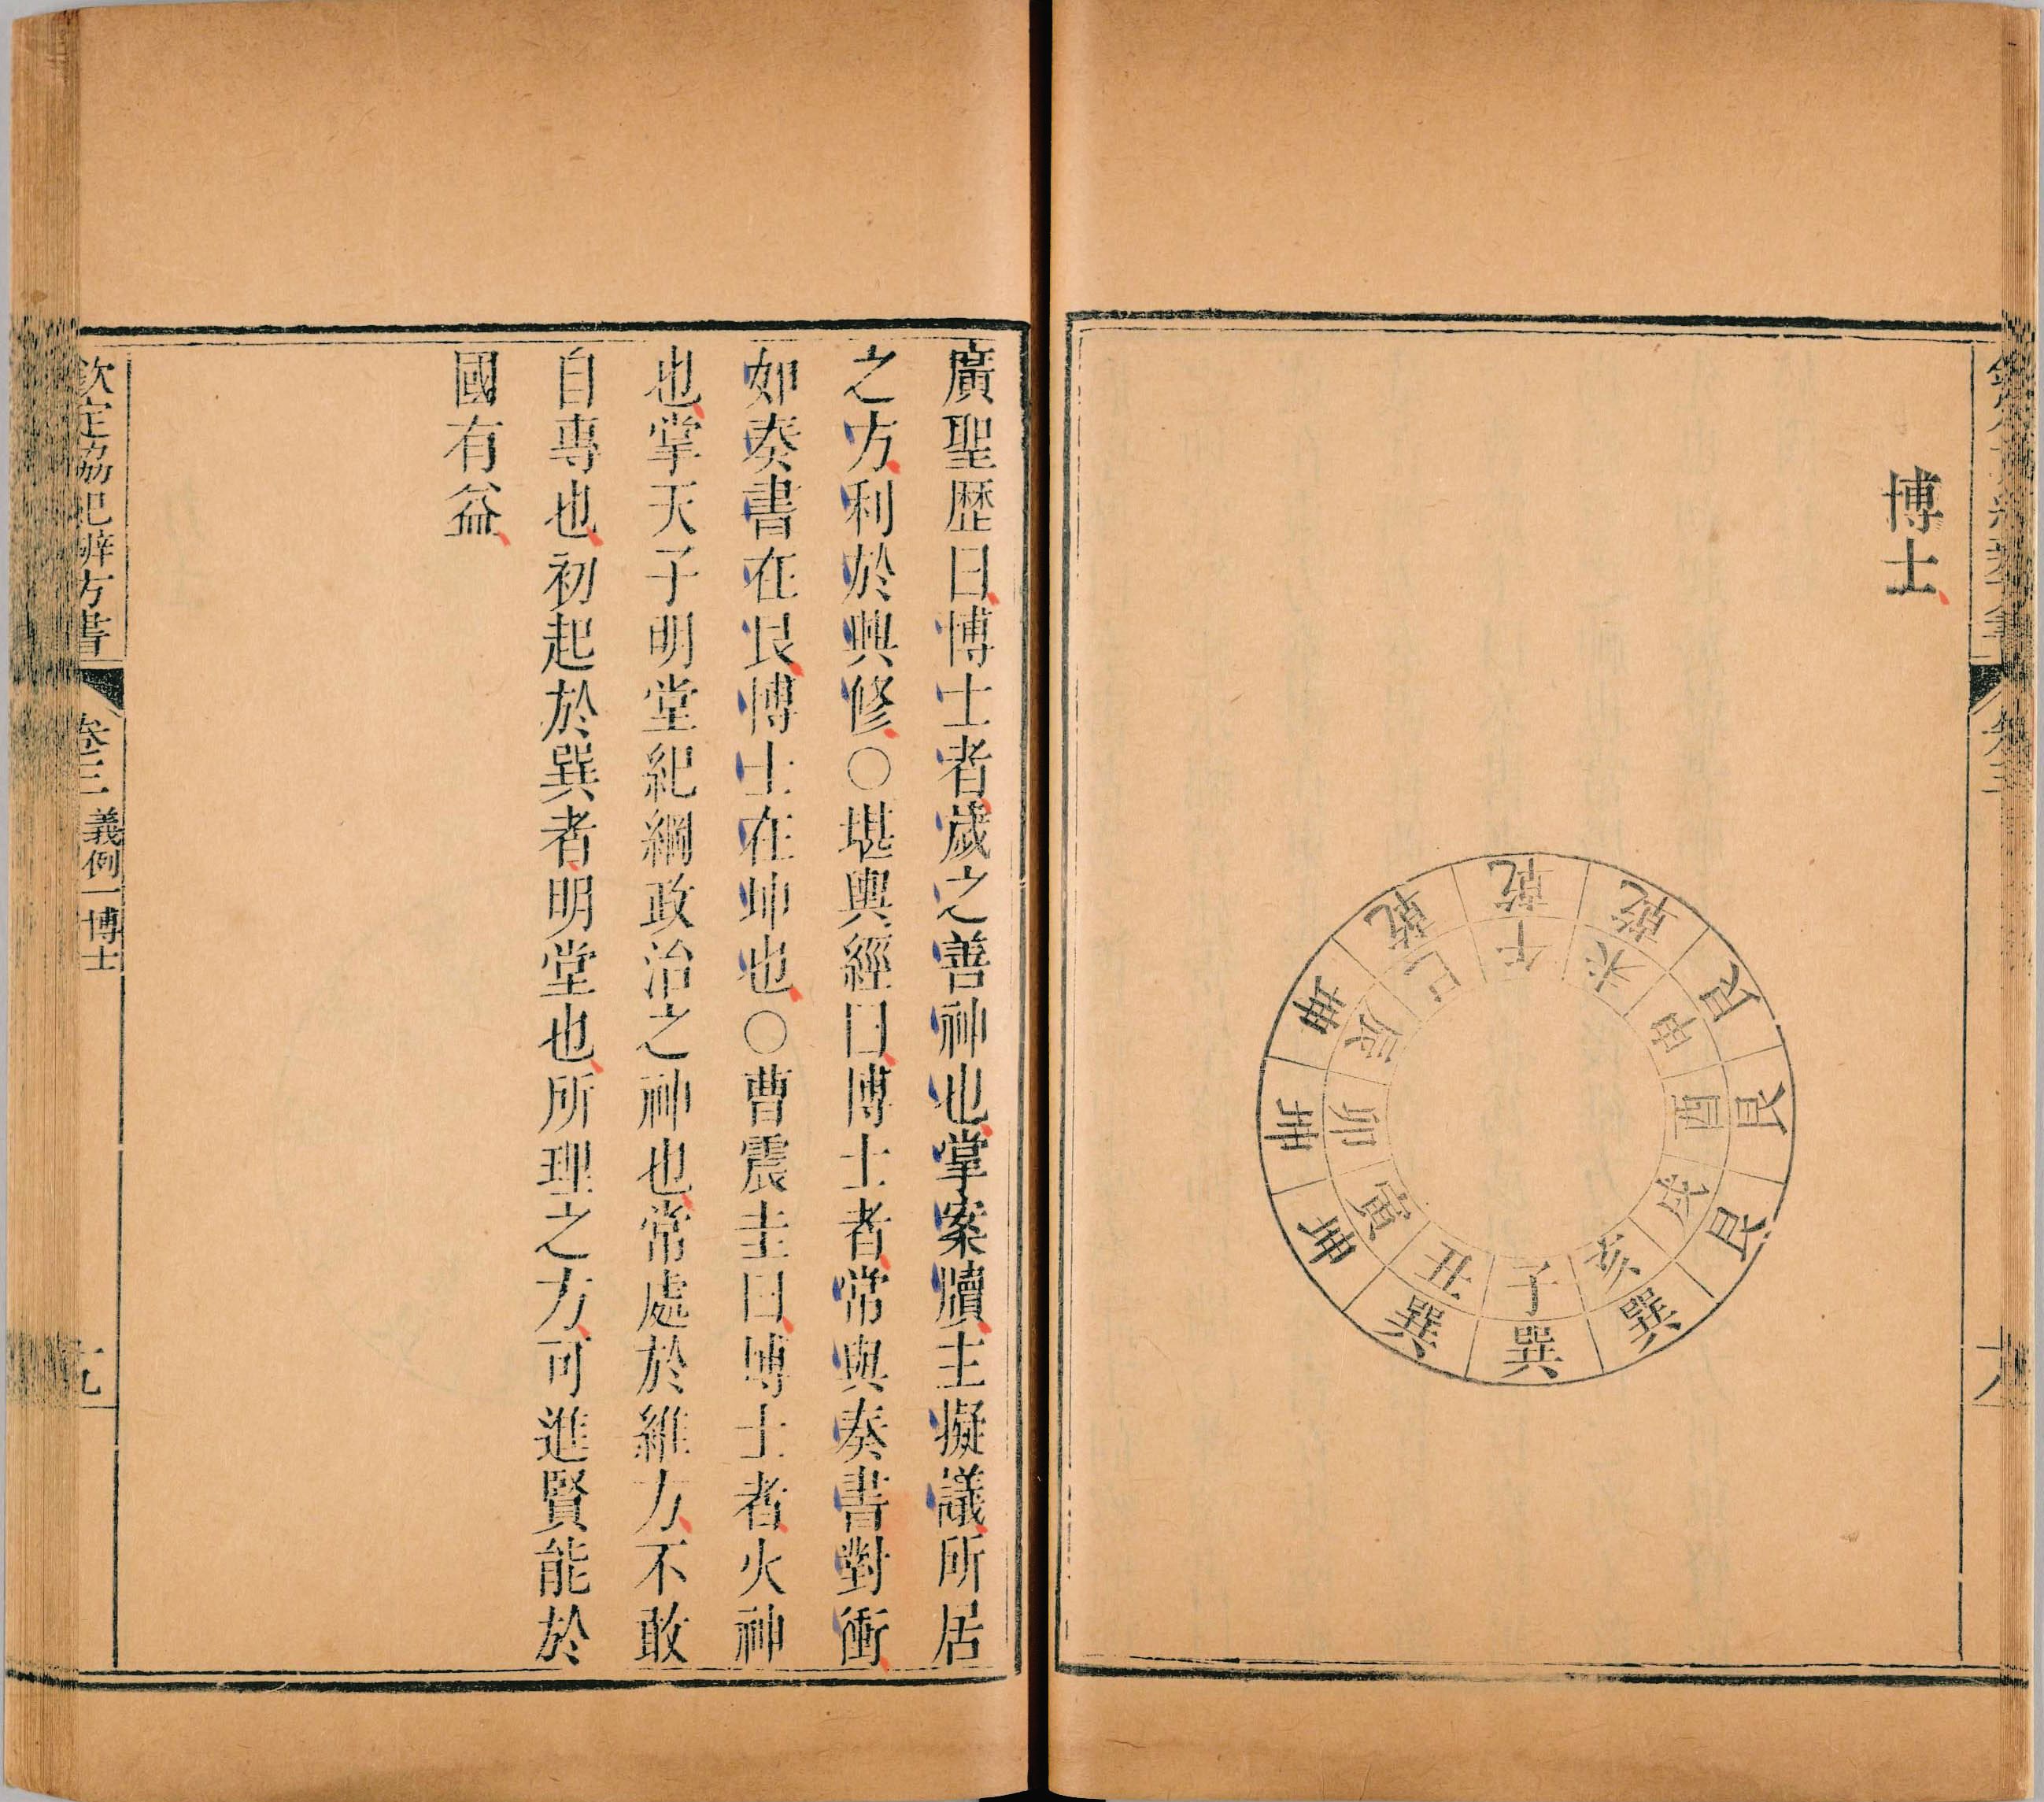 博士
乾 乾 乾 艮 艮 艮 巽 巽 巽 坤 坤 坤
巳 午 未 申 酉 戌 亥 子 丑 寅 卯 辰
卷三
十八
廣聖歷曰博士者歲之善神也掌案牘主擬議所居
之方利於興修○堪輿經曰博士者常與奏書對衝
如奏書在艮博士在坤也○曹震圭曰博士者火神
也掌天子明堂紀綱政治之神也常處於維方不敢
自專也初起於巽者明堂也所理之方可進賢能於
國有益
欽定協紀辨方書
卷三 義例一 博士
十九